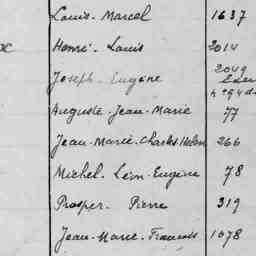 Louis-Marcel 1637
x Henri-Louis 2014
Joseph-Eugène 2049
Auguste-Jean-Marie 77
Jean-Marie-Charles-Helen 266
Michel-Léon-Eugène 78
Prosper-Pierre 319
Jean-Marie-François 1078